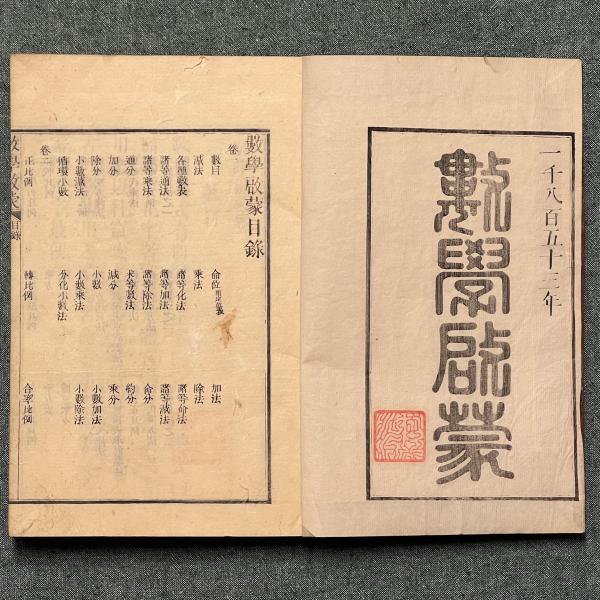 一千八百五十三年
數學啟蒙
數學啟蒙目錄
卷一
數目 命位 加法
減法 乘法 除法
各種數表 諸等化法 諸等命法
諸等通法 諸等加法 諸等減法
諸等乘法 諸等除法 命分
通分 求等數法 約分
加分 減分 乘分
除分 小數 小數加法
小數減法 小數乘法 小數除法
循環小數 分化小數法
卷二
正比例 轉比例 合率比例
數學啟蒙 目錄